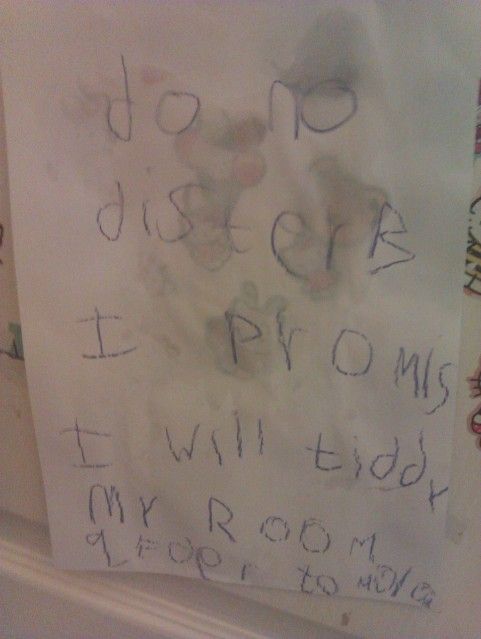 do no
disterB
I PrOMis
I will tiddy
My ROOM
to